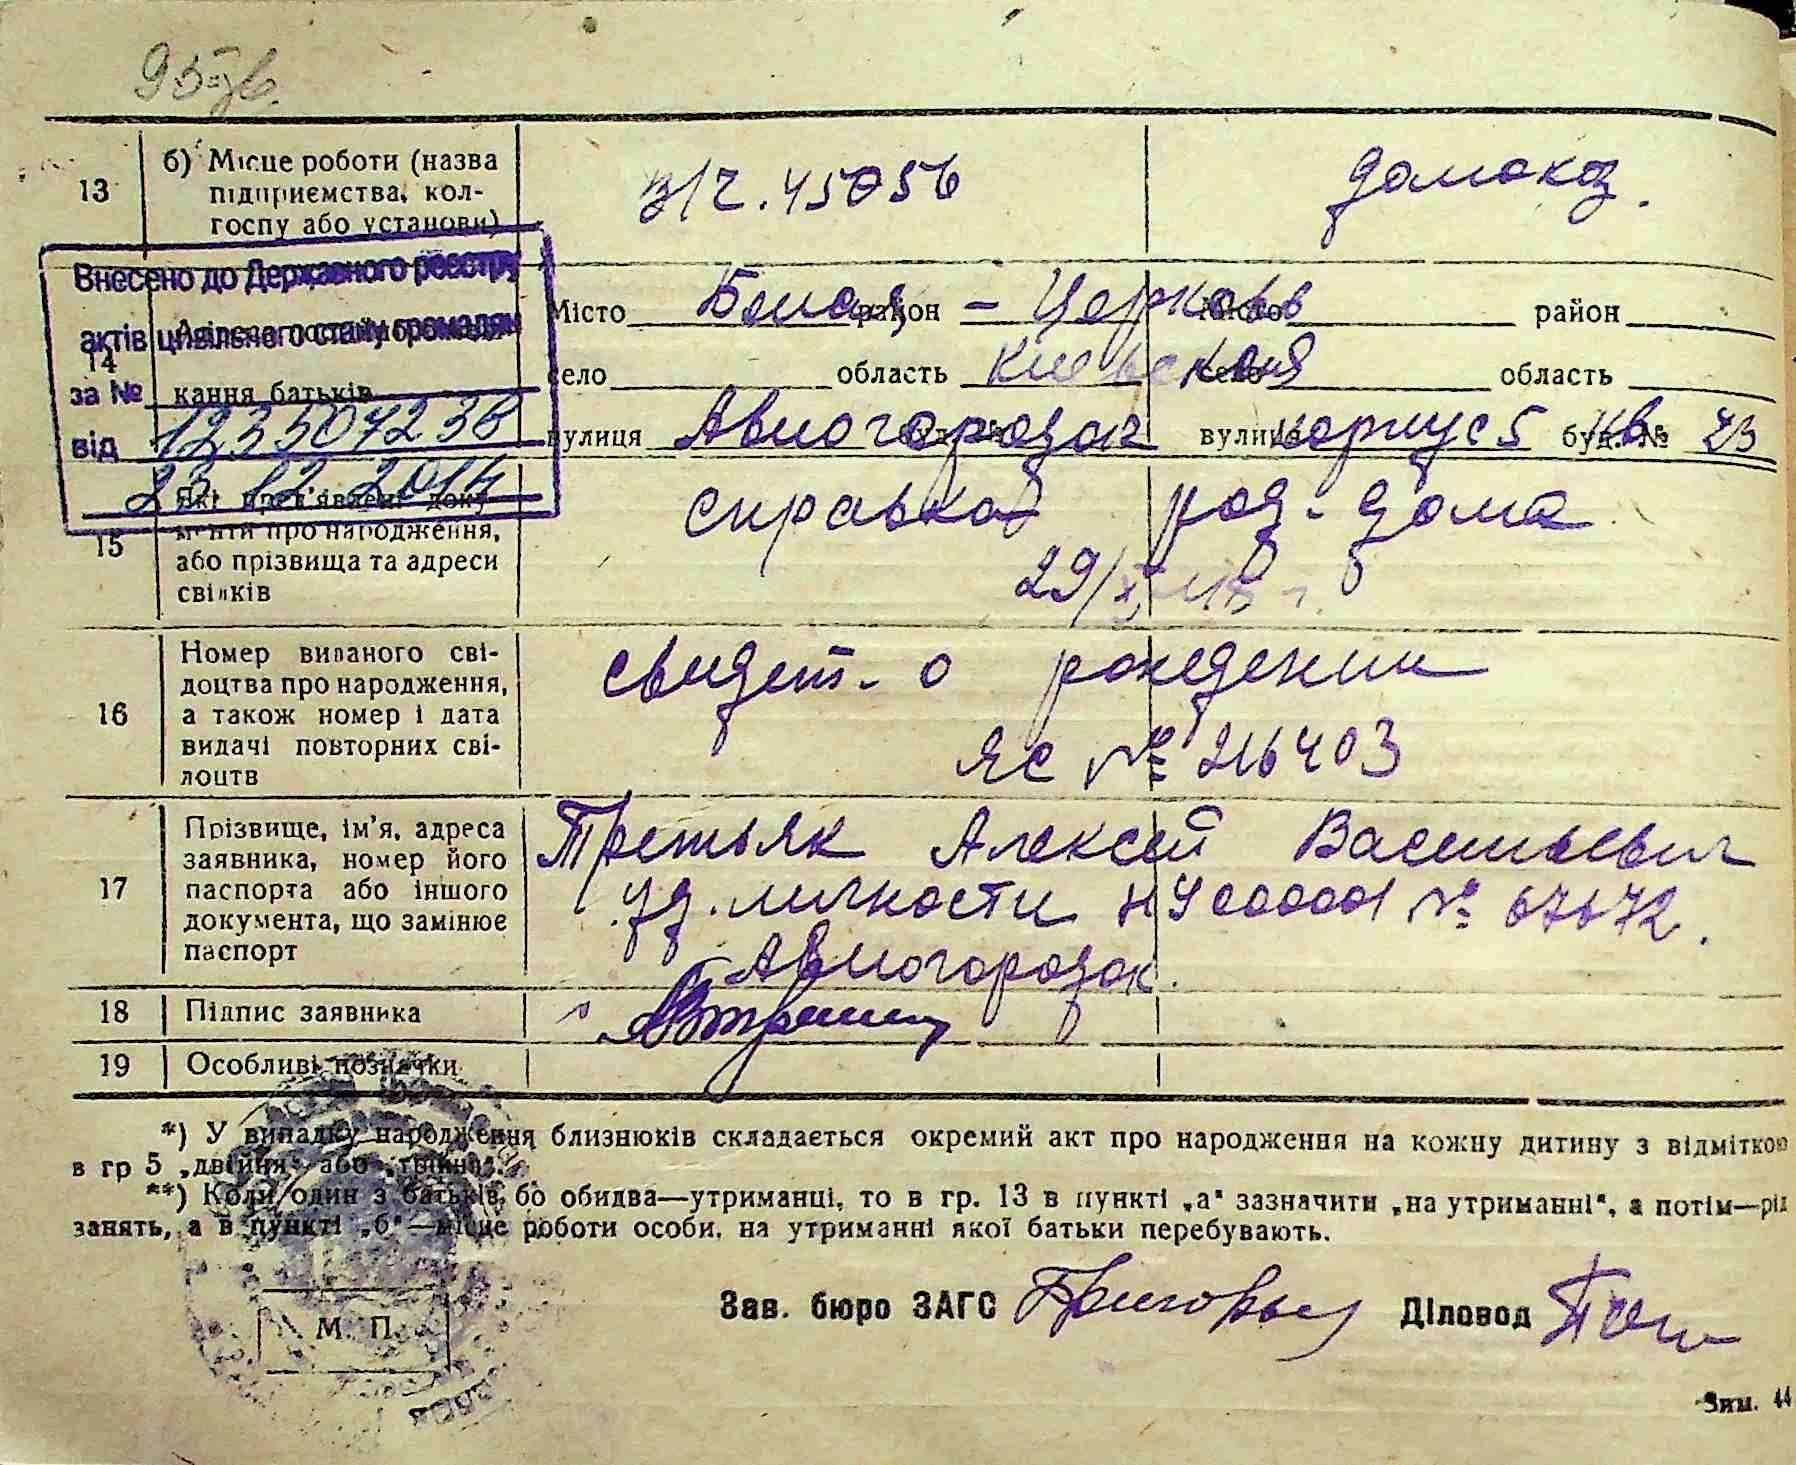 13
б) Місце роботи (назва
підприємства, кол-
госпу або установи)
в/ч. 45056
домохоз.
Внесено до Державного реєстру
актів цивільного стану громадян
за №
123507238
від
23 12 2014
14
кання батьків
Місто Белая район - Церковь Місто район
село область Киевская село область
вулиця Авиогородок вулиця корпус 5 буд. № кв 73
15
Які пред'явлені доку-
менти про народження,
або прізвища та адреси
свідків
справка род-дома
29/XI
16
Номер виданого сві-
доцтва про народження,
а також номер і дата
видачі повторних сві-
доцтв
свидет. о рождении
ЯС № 216403
17
Прізвище, ім'я, адреса
заявника, номер його
паспорта або іншого
документа, що замінює
паспорт
Третьяк Алексей Васильевич
уд. личности НУ 000001 № 67672.
Авиогородок.
18
Підпис заявника
19
Особливі позначки
*) У випадку народження близнюків складається окремий акт про народження на кожну дитину з відміткою
в гр 5 „двійня“ або „трійня“.
**) Коли один з батьків, бо обидва—утриманці, то в гр. 13 в пункті „а“ зазначити „на утриманні“, а потім—рід
занять, а в пункті „б“—місце роботи особи, на утриманні якої батьки перебувають.
Зав. бюро ЗАГС Діловод
М. П.
Зим. 44